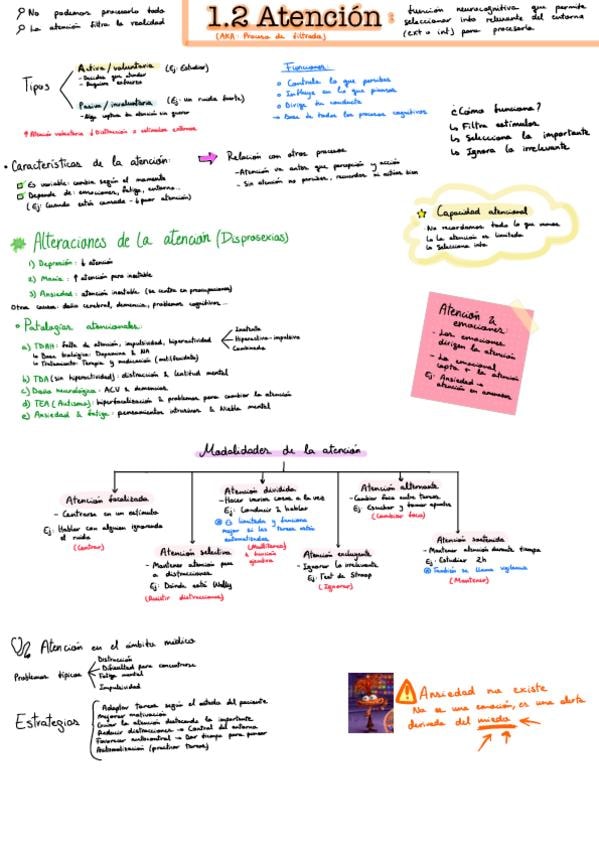 No podemos procesarlo todo
La atención filtra la realidad
1.2 Atención:
(AKA: Proceso de filtrado)
función neurocognitiva que permite
seleccionar info relevante del entorno
(ext o int) para procesarla
Tipos
Activa/voluntaria (Ej: Estudiar)
- Decides que atender
- Requiere esfuerzo
Pasiva/involuntaria (Ej: un ruido fuerte)
- Algo captura tu atención sin querer
↑ Atención voluntaria ↓ Distracción a estímulos externos
Funciones:
Controla lo que percibes
Influye en lo que piensas
Dirige tu conducta
→ Base de todos los procesos cognitivos
¿Cómo funciona?
↳ Filtra estímulos
↳ Selecciona lo importante
↳ Ignora lo irrelevante
• Características de la atención:
Es variable: cambia según el momento
Depende de: emociones, fatiga, entorno...
(Ej: Cuando estás cansado → ↓ peor atención)
Relación con otros procesos
- Atención va antes que percepción y acción
- Sin atención no percibes, recuerdas ni actúas bien
Capacidad atencional
No recordamos todo lo que vemos
↳ La atención es limitada
↳ Selecciona info
Alteraciones de la atención (Disprosexias)
1) Depresión: ↓ atención
2) Manía: ↑ atención pero inestable
3) Ansiedad: atención inestable (se centra en preocupaciones)
Otras causas: daño cerebral, demencia, problemas cognitivos...
Atención & emociones:
- Las emociones
dirigen la atención
- Lo emocional
capta + la atención
Ej: Ansiedad →
atención en amenazas
• Patologías atencionales:
a) TDAH: falta de atención, impulsividad, hiperactividad
Inatento
Hiperactivo-impulsivo
Combinado
↳ Base biológica: Dopamina & NA
↳ Tratamiento: Terapia y medicación (metilfenidato)
b) TDA (sin hiperactividad): distracción & lentitud mental
c) Daño neurológico: ACV & demencias
d) TEA (Autismo): hiperfocalización & problemas para cambiar la atención
e) Ansiedad & fatiga: pensamientos intrusivos & niebla mental
Modalidades de la atención
Atención focalizada
- Centrarse en un estímulo
Ej: Hablar con alguien ignorando
el ruido
(Centrar)
Atención selectiva
- Mantener atención pese
a distracciones
Ej: Dónde está Wally
(Resistir distracciones)
Atención dividida
- Hacer varias cosas a la vez
Ej: Conducir & hablar
Es limitada y funciona
mejor si las tareas están
automatizadas
(Multitarea)
Atención excluyente
- Ignorar lo irrelevante
Ej: Test de Stroop
(Ignorar)
Atención alternante
- Cambiar foco entre tareas
Ej: Escuchar y tomar apuntes
(Cambiar foco)
Atención sostenida
- Mantener atención durante tiempo
Ej: Estudiar 2h
También se llama vigilancia
(Mantener)
Atención en el ámbito médico
Problemas típicos
Distracción
Dificultad para concentrarse
Fatiga mental
Impulsividad
Estrategias
Adaptar tareas según el estado del paciente
Mejorar motivación
Guiar la atención destacando lo importante
Reducir distracciones → Control del entorno
Favorecer autocontrol → Dar tiempo para pensar
Automatización (practicar tareas)
Ansiedad no existe
No es una emoción, es una alerta
derivada del miedo